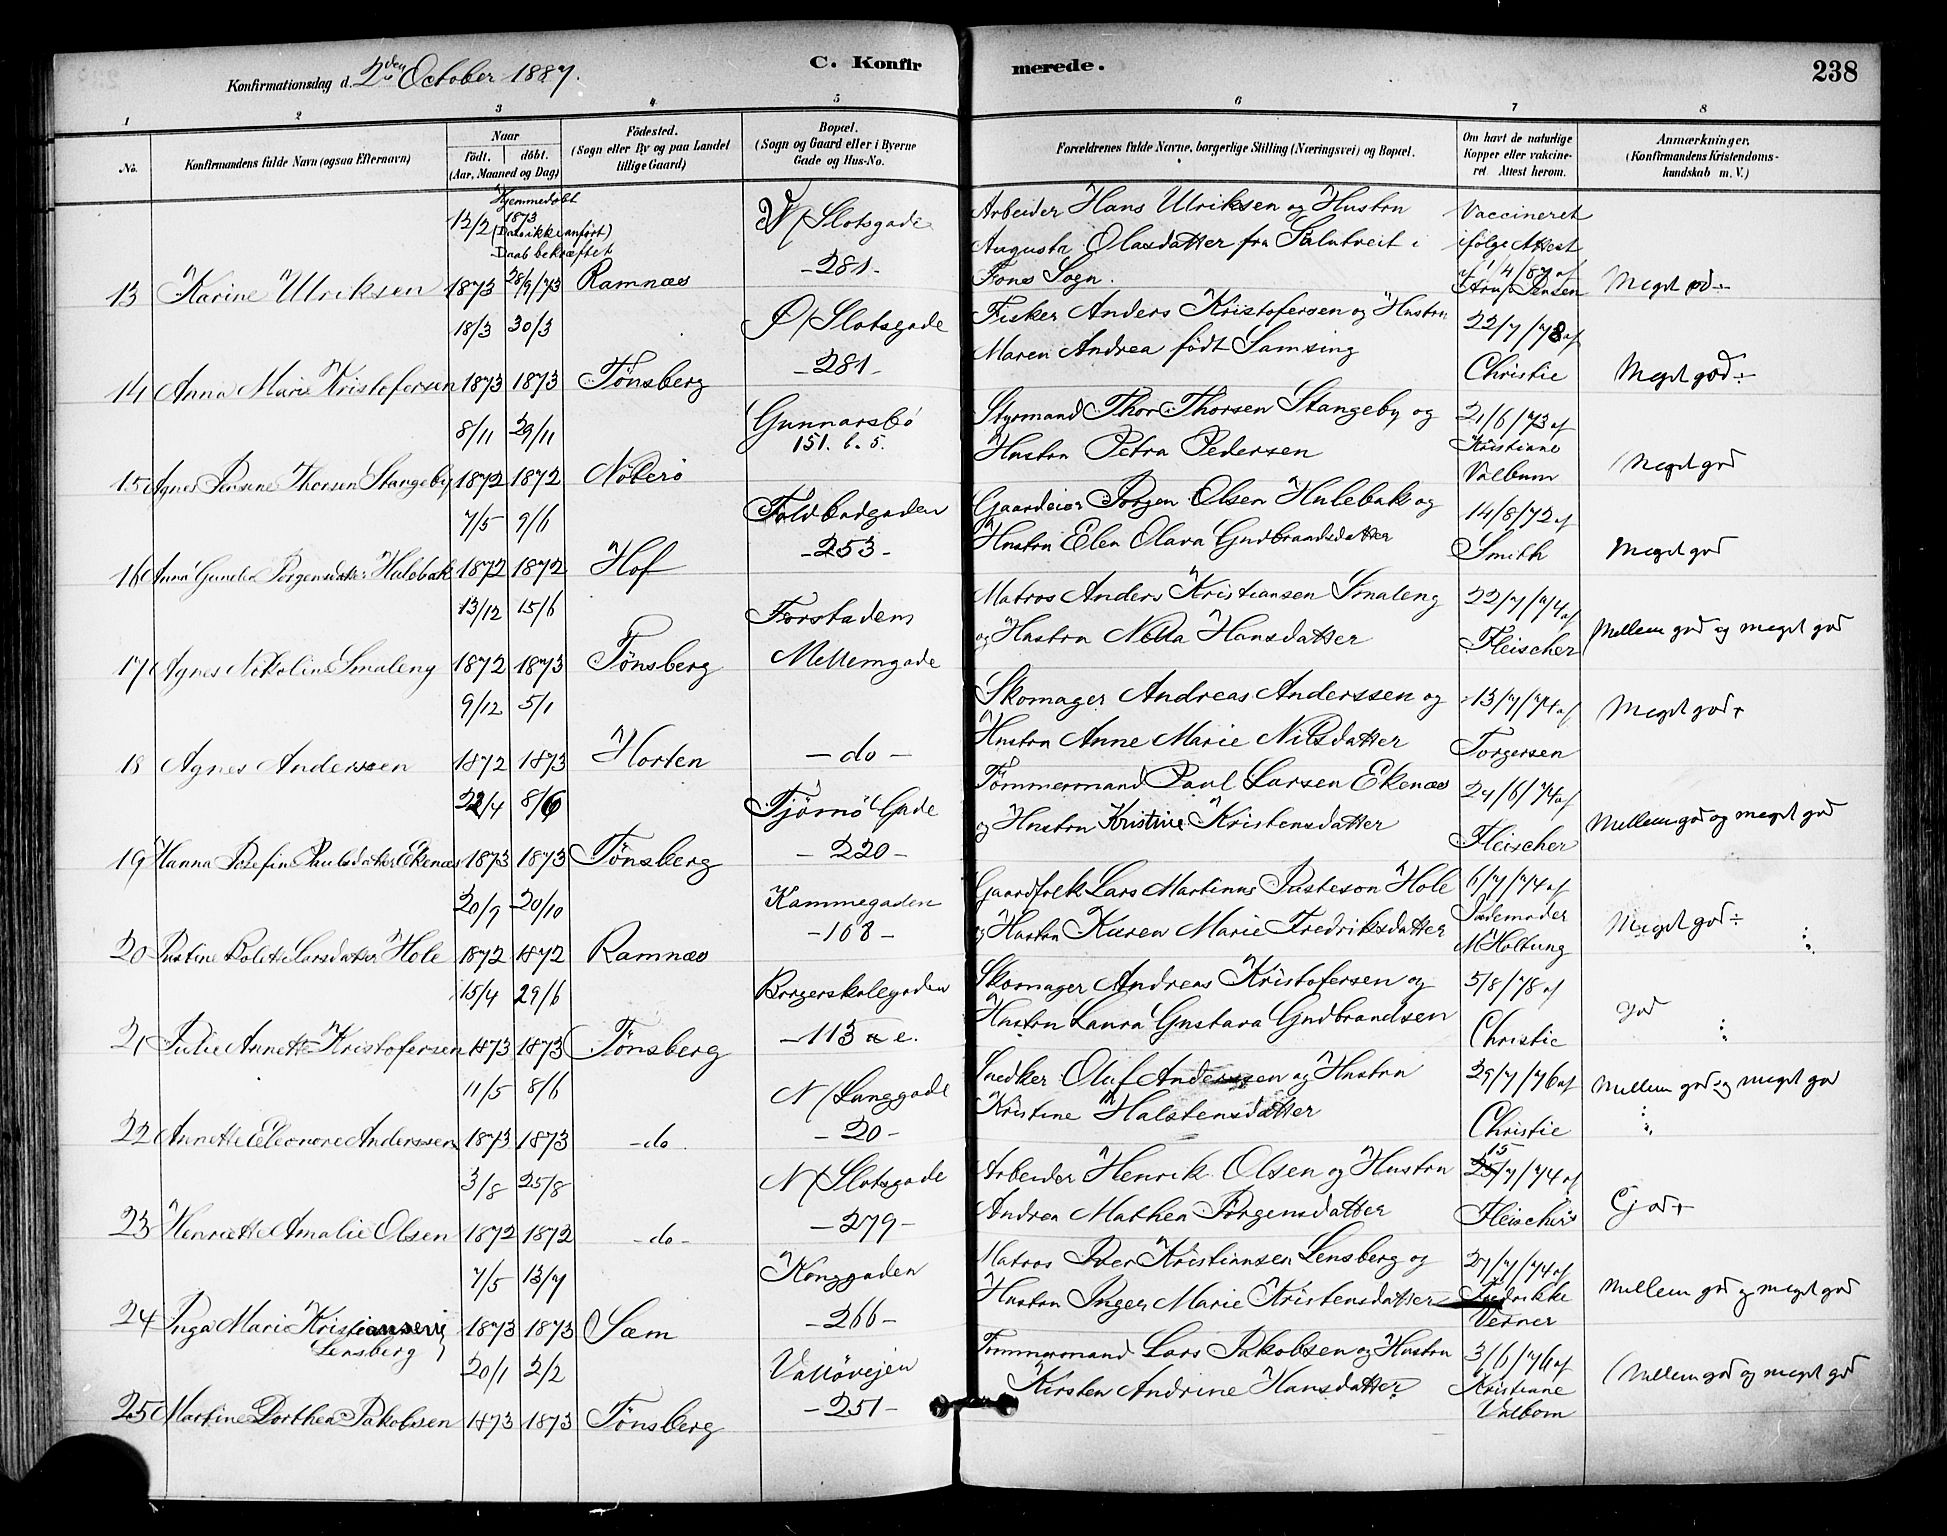 Konfirmationsdag d. 2den October 1887.
C. Konfirmerede.
238
1 2 3 4 5 6 7 8
No.
Konfirmandens fulde Navn (ogsaa Efternavn)
Naar
født. døbt.
(Aar, Maaned og Dag)
Fødested.
(Sogn eller By og paa Landet
tillige Gaard)
Bopæl.
(Sogn og Gaard eller i Byerne
Gade og Hus-No.
Forældrenes fulde Navne, borgerlige Stilling (Næringsvei) og Bopæl.
Om havt de naturlige
Kopper eller vakcine-
ret Attest herom.
Anmærkninger.
(Konfirmandens Kristendoms-
kundskab m. V.)
Hjemmedøbt
12/2 1873
(Dato ikke anført)
Daab bekræftet
13 Karine Ulriksen 1873 28/9/73 Ramnæs
V/Slotsgade
-281-
Arbeider Hans Ulriksen og Hustru
Augusta Olasdatter fra Salutveit i
Fons Sogn.
Vaccineret
ifølge Attest
af 1/4/87 af
Jensen
Meget god
18/3 30/3
14 Anna Marie Kristofersen 1873 1873 Tønsberg
Ø/Slotsgade
-281-
Fisker Anders Kristofersen og Hustru
Maren Andrea født Samsing
22/7/78 af
Christie
Meget god÷
8/11 29/11
15 Agnes Jensine Thorsen Stangeby 1872 1872 Nøterø
Gunnarsbø
151. b. 5.
Styrmand Thor Thorsen Stangeby og
Hustru Petra Pedersen
21/6/73 af
Kristiane
Valbum
Meget god
7/5 9/6
16 Anna Gunelia Jørgensdatter Hulebak 1872 1872 Hof
Toldbodgaden
-253-
Gaardeier Jørgen Olsen Hulebak og
Hustru Elen Olava Gudbrandsdatter
14/8/72 af
Smith
Meget god
13/12 15/6
17 Agnes Nikoline Smaleng 1872 1873 Tønsberg
Forstaden
Mellemgade
Matros Anders Kristiansen Smaleng
og Hustru Netta Hansdatter
22/7/74 af
Fleischer
Mellem god og meget god
9/12 5/1
18 Agnes Anderssen 1872 1873 Horten
- do -
Skomager Andreas Anderssen og
Hustru Anne Marie Nilsdatter
13/7/74 af
Torgersen
Meget god+
22/4 8/6
19 Hanna Josefin Paulsdatter Ekenæs 1873 1873 Tønsberg
Tjømø Gade
- 220 -
Tømmermand Paul Larsen Ekenæs
og Hustru Kristine Kristensdatter
24/6/74 af
Fleischer
Mellem god og meget god
20/9 20/10
20 Justine Bolette Larsdatter Hole 1872 1872 Ramnæs
Kammegaden
-108-
Gaardfolk Lars Martinus Justeson Hole
og Hustru Karen Marie Fredriksdatter
6/7/74 af
Jordemoder
M Holtung
Meget god÷
15/4 29/6
21 Julie Annette Kristofersen 1873 1873 Tønsberg
Borgerskolegaden
-113 e.
Skomager Andreas Kristofersen og
Hustru Laura Gustava Gudbrandsen
5/8/78 af
Christie
god
11/5 8/6
22 Annette Eleonore Anderssen 1873 1873 -do
N/Langgade
-20-
Snedker Oluf Anderssen og Hustru
Kristine Halstensdatter
29/7/76 af
Christie
Mellem god og meget god
3/8 25/8
23 Henriette Amalie Olsen 1872 1872 -do-
N/Slotsgade
-279-
Arbeider Henrik Olsen og Hustru
Andrea Mathea Jørgensdatter
15/7/74 af
Fleischer
God+
7/5 13/7
24 Inga Marie Kristiansen 1873 1873 Sæm
Lensberg
Konggaden
-266-
Matros Iver Kristiansen Lensberg og
Hustru Inger Marie Kristensdatter
27/7/74 af
Fredrikke
Verner
Mellem god og meget god
20/1 2/2
25 Martine Dorthea Jakobsen 1873 1873 Tønsberg
Valløveien
-251-
Tømmermand Lars Jakobsen og Hustru
Kirsten Andrine Hansdatter
3/6/76 af
Kristiane
Valbom
Mellem god og meget god